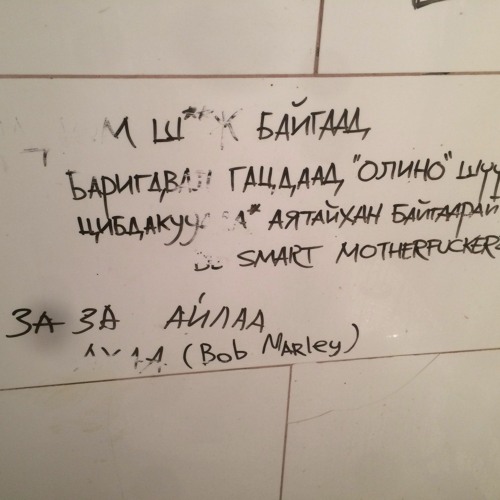 М Ш**К БАЙГААД
БАРИГДВАЛ ГАЦДААД, "ОЛИНО" ШҮҮ
АЯТАЙХАН БАЙГААРАЙ
SMART MOTHERFUCKERS
ЗА ЗА АЙЛАА
(Bob Marley)